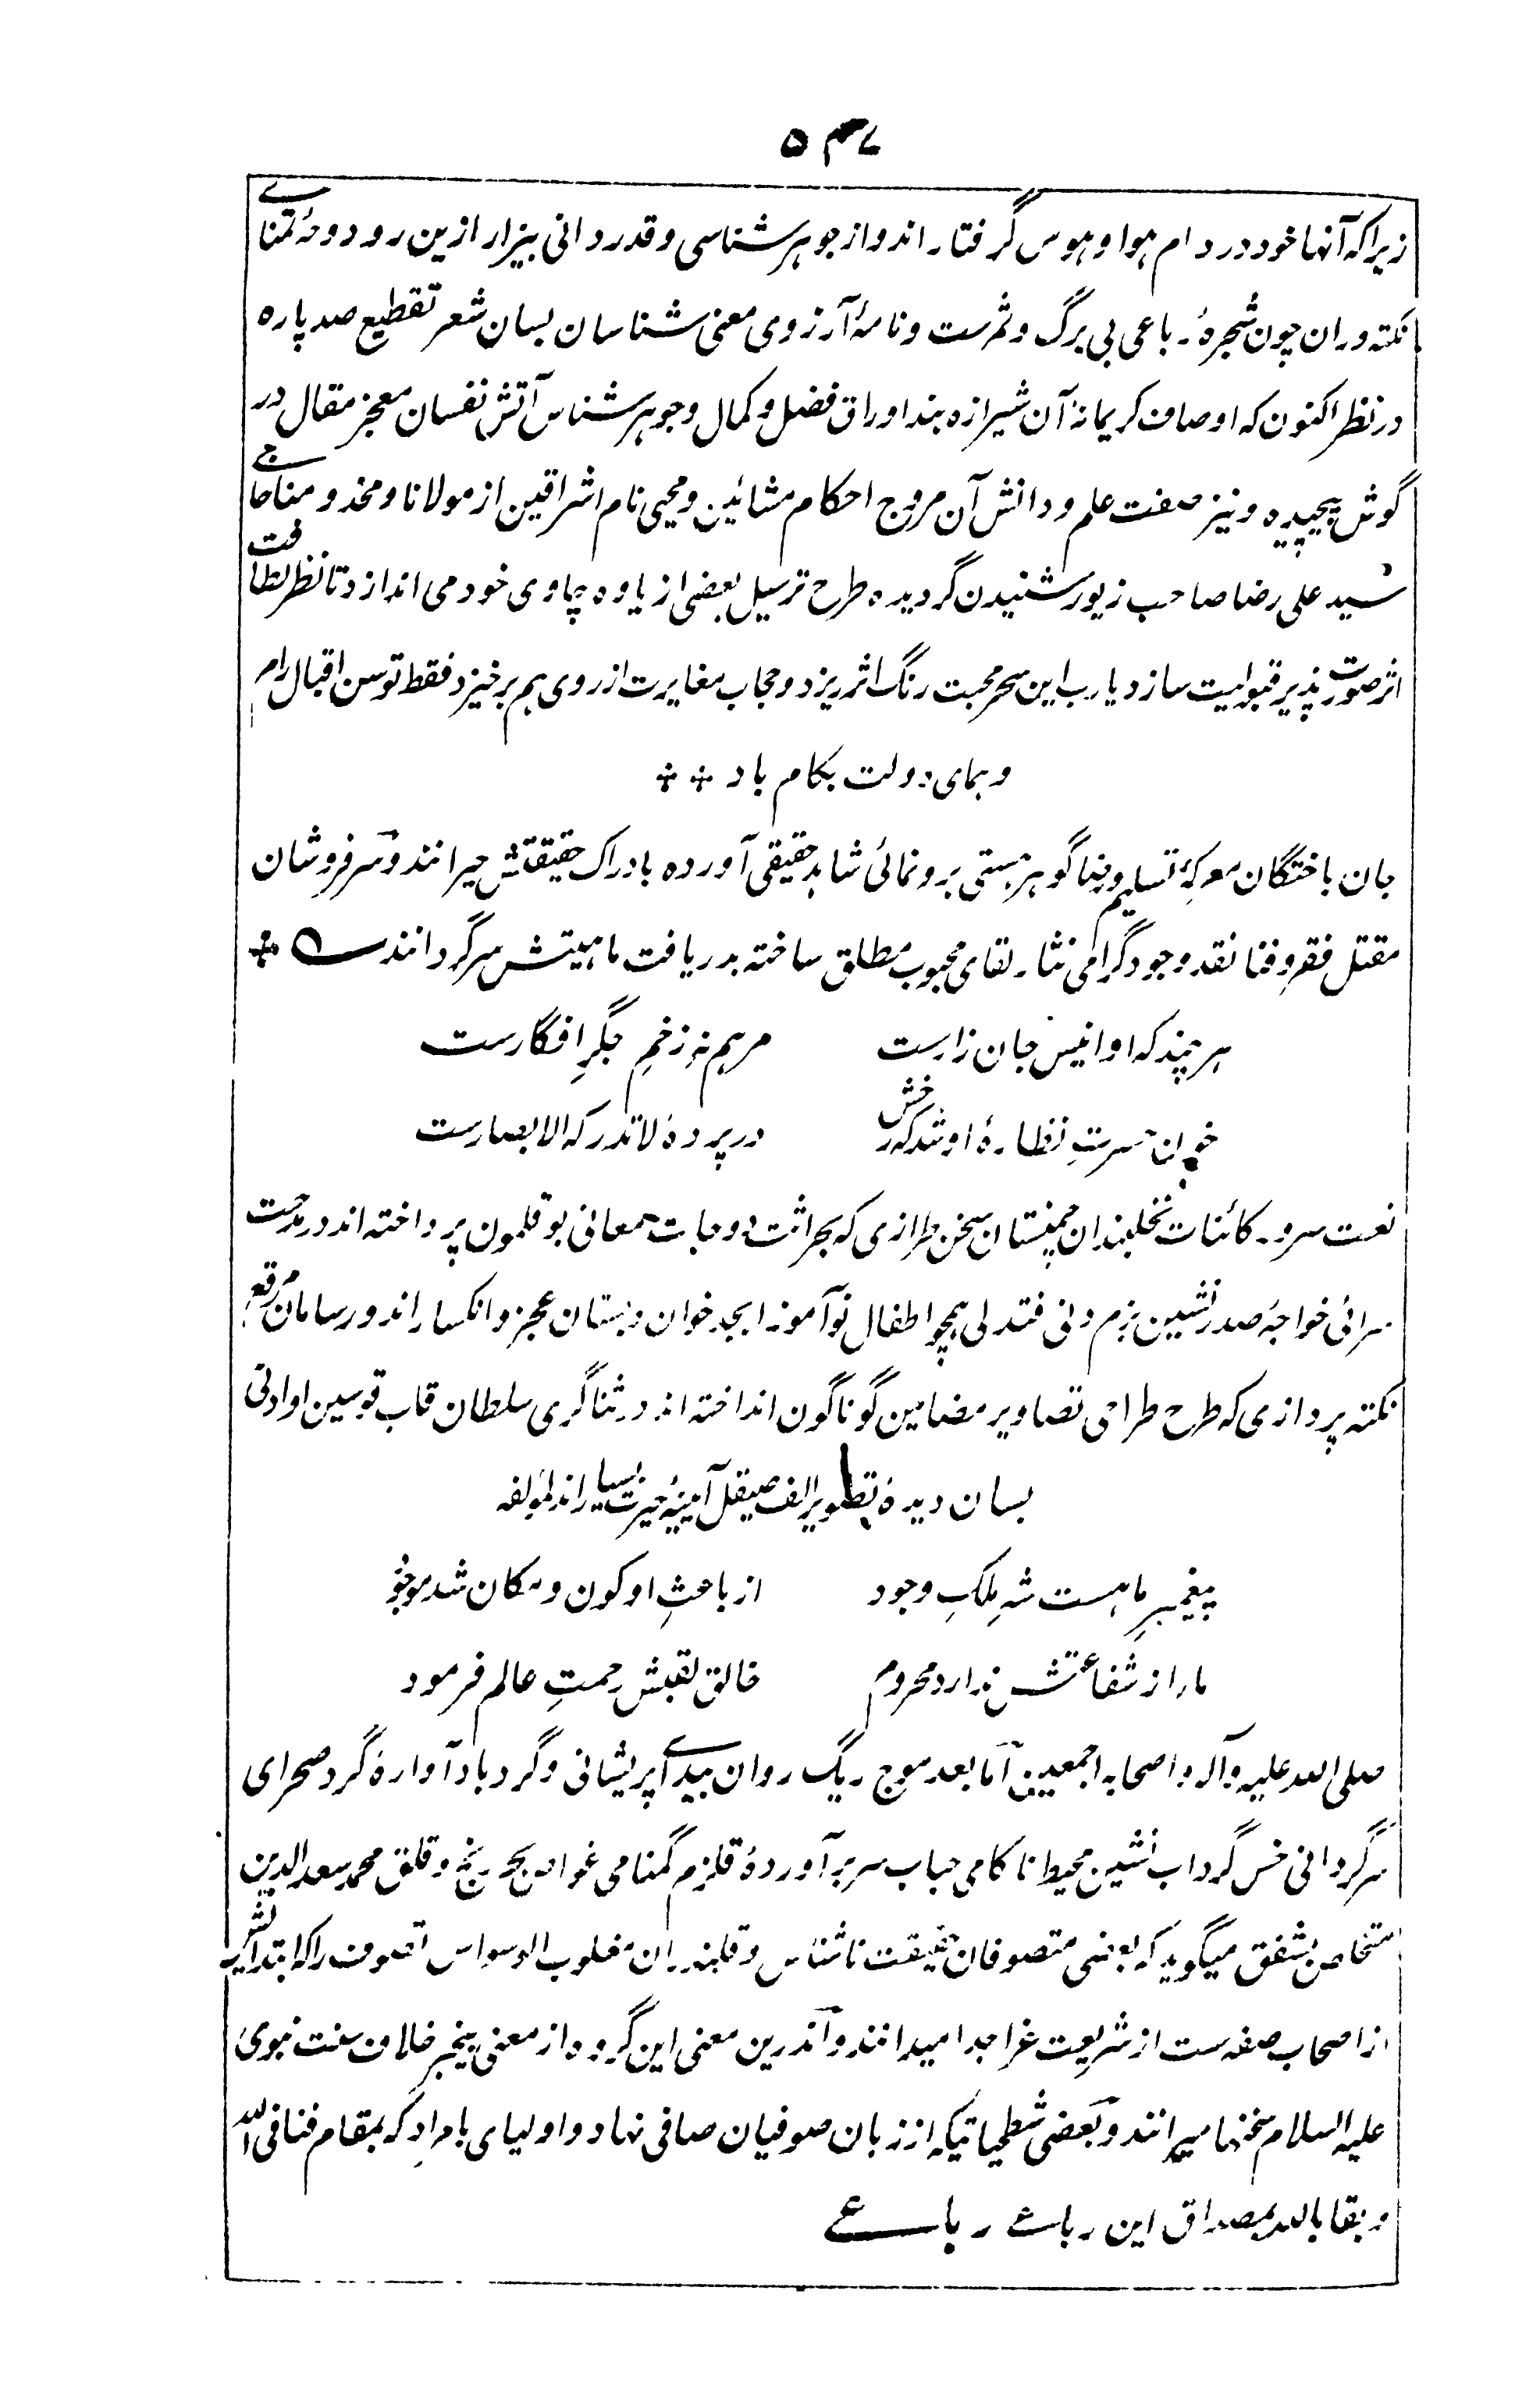 ۵۴۷
زیراکه آنها خود در دام هوا و هوس گرفتار اند و از جوهر شناسی و قدردانی بیزار ازین رو دوحهٔ تمنای
نکته وران چون شجرهٔ رباعی بی برگ و ثمرست و نامهٔ آرزوی معنی شناسان بسان شعر تقطیع صد پاره
در نظر اکنون که اوصاف کریمانهٔ آن شیرازه بند اوراق فضل و کمال و جوهر شناس آتش نفسان معجز مقال در
گوش پیچیده و نیز صفت علم و دانش آن مروج احکام مشائین و محیی نام اشراقین از مولانا و مخدومنا حاجی
سید علی رضا صاحب زیور شنیدن گردیده طرح ترسیل بعضی از یاوه چاوی خود می اندازد تا نظر لطافت
اثر صورت پذیر قبولیت سازد یارب این سحر محبت رنگ اثر ریزد و حجاب مغایرت از روی هم برخیزد فقط توسن اقبال رام
و همای دولت بکام باد ❊ ❊
جان باختگان معرکهٔ تسلیم و رضا گوهر هستی برونمائی شاهد حقیقی آورده بادراک حقیقتش حیرانند و سرفروشان
مقتل فقر و فنا نقد وجود گرامی نثار لقای محبوب مطلق ساخته بدریافت ماهیتش سرگردانند ؎ ❊
هر چند که او انیس جان زارست مرهم نهِ زخمِ جگرِ افکارست
خون حسرتِ نظارهٔ او شد که رخش در پردهٔ لا تدرکه الابصارست
نعت سرور کائنات نخلبندان چمنستان سخن طرازی که بحراثت دوحات معانی بوقلمون پرداخته اند در مدحت
سرائی خواجهٔ صدر نشین بزم دنی فتدلی همچو اطفال نوآموز ابجد خوان دبستان عجز و انکسار اند و رسامان مرقع
نکته پردازی که طرح طراحی تصاویر مضامین گوناگون انداخته اند در ثناگری سلطان قاب قوسین او ادنی
بسان دیدهٔ تصویر الف صیقل آیینهٔ حیرت بسیار اند لمؤلفه
پیغمبرِ ما هست شهِ ملکِ وجود از باعثِ او کون و مکان شد موجود
ما را ز شفاعتش ندارد محروم خالق لقبش رحمتِ عالم فرمود
صلی الله علیه و آله و اصحابه اجمعین اما بعد موج ریگ روان بیدای پریشانی و گردباد آوارهٔ گرد صحرای
سرگردانی خس گرداب نشین محیط ناکامی حباب سربرآوردهٔ قلزم گمنامی غواص بحر رنج و قلق محمد سعد الدین
متخلص بشفق میگوید که بعضی متصوفان حقیقت ناشناس و قلندران مغلوب الوسواس تصوف را که ابتدایش
از اصحاب صفه ست از شریعت غرا جدا میدانند و اندرین معنی این گروه از معنی بیخبر خلاف سنت نبوی
علیه السلام سخنها میرانند و بعضی شطحیاتیکه از زبان صوفیان صافی نهاد و اولیای بامراد که بمقام فنا فی الله
و بقا بالله بمصداق این رباعی رباعی